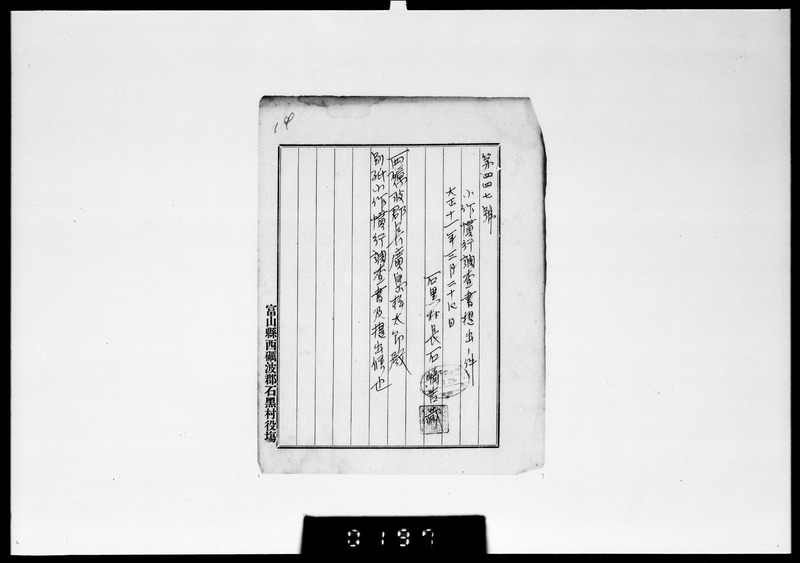 第四四七號
小作慣行調査書提出ノ件
大正十一年三月二十八日
石黒村長石﨑吉藏
西礪波郡長廣島 太郎殿
別紙小作慣行調査書及提出候也
富山縣西礪波郡石黑村役場
14
0197